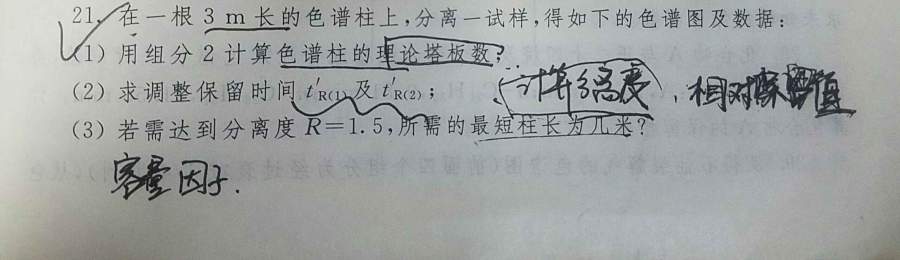 21. 在一根 3 m 长的色谱柱上,分离一试样,得如下的色谱图及数据:
(1) 用组分 2 计算色谱柱的理论塔板数;
(2) 求调整保留时间 t′R(1) 及 t′R(2); 计算 、相对保留值
(3) 若需达到分离度 R=1.5,所需的最短柱长为几米?
容量因子.